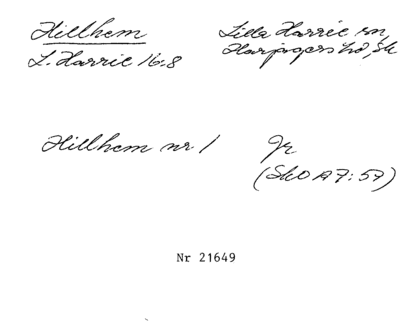 Hillhem
Lilla Harrie sn,
L. Harrie 16:8
Harjagers hd, Sk
Hillhem nr 1
Gr
(SkO A7:57)
Nr 21649